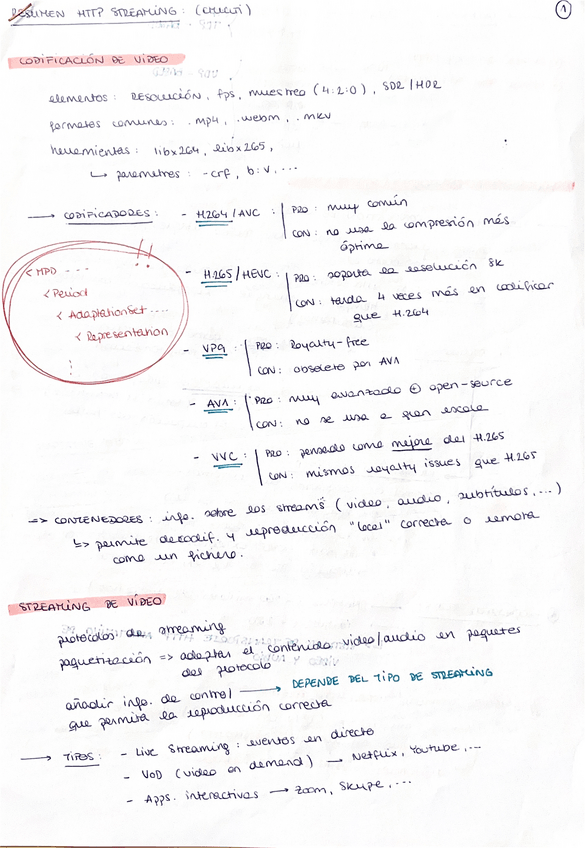 RESUMEN HTTP STREAMING :
1
CODIFICACIÓN DE VÍDEO
elementos : RESOLUCIÓN, fps, muestreo (4:2:0), SDR/HDR
formatos comunes : .mp4, .webm, .mkv
herramientas : libx264, libx265,
↳ parametros : -crf, b:v, ...
→ CODIFICADORES : - H264/AVC : PRO : muy común
CON : no usa la compresión más
óptima
- H.265/HEVC : PRO : soporta la resolución 8k
CON : tarda 4 veces más en codificar
que H.264
!!
< MPD ---
< Period
< AdaptationSet ....
< Representation
⋮
- VP9 : PRO : Royalty-free
CON : obsoleto por AV1
- AV1 : PRO : muy avanzado ⊕ open-source
CON : no se usa a gran escala
- VVC : PRO : pensado como mejora del H.265
CON : mismos royalty issues que H.265
=> CONTENEDORES : info. sobre los streams (video, audio, subtítulos, ...)
↳ permite decodif. y reproducción "local" correcta o remota
como un fichero.
STREAMING DE VÍDEO
protocolos de streaming
paquetización => adaptar el contenido video/audio en paquetes
del protocolo
añadir info. de control → DEPENDE DEL TIPO DE STREAMING
que permita la reproducción correcta
→ TIPOS : - Live Streaming : eventos en directo
- VoD (video on demand) → Netflix, Youtube, ...
- Apps. interactivas → Zoom, Skype, ...